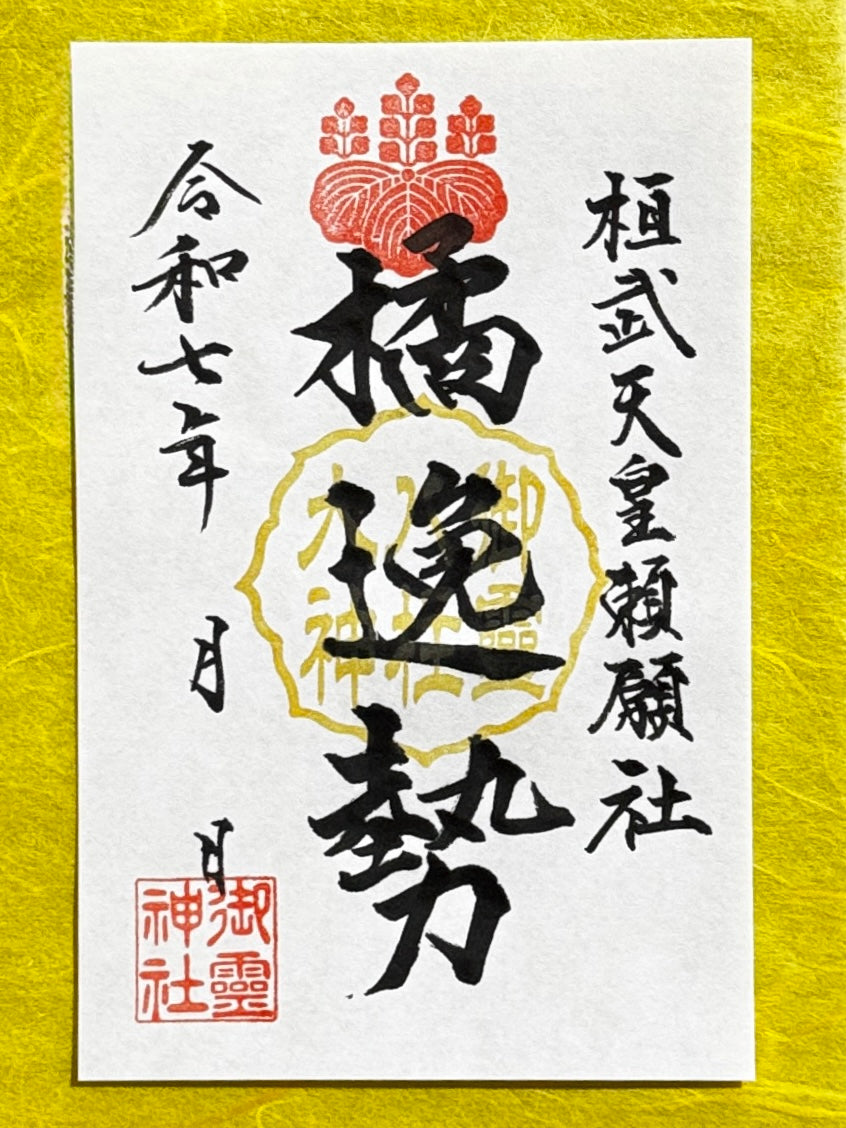 桓武天皇頼願社
橘逸勢
御靈
八社
大神
令和七年　月　日
御靈
神社